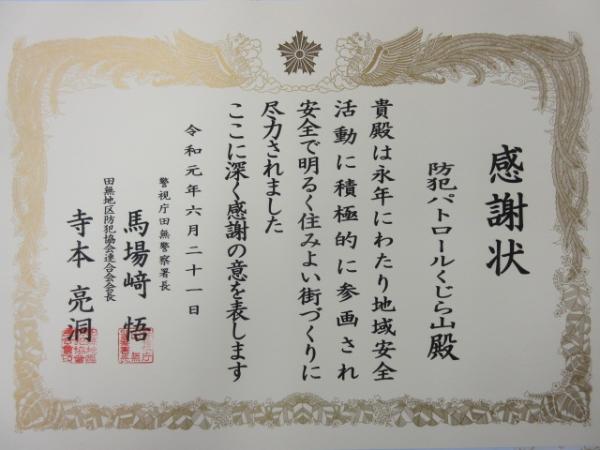 感謝状
防犯パトロールくじら山殿
貴殿は永年にわたり地域安全
活動に積極的に参画され
安全で明るく住みよい街づくりに
尽力されました
ここに深く感謝の意を表します
令和元年六月二十一日
警視庁田無警察署長
馬場﨑 悟
田無地区防犯協会連合会会長
寺本 亮洞